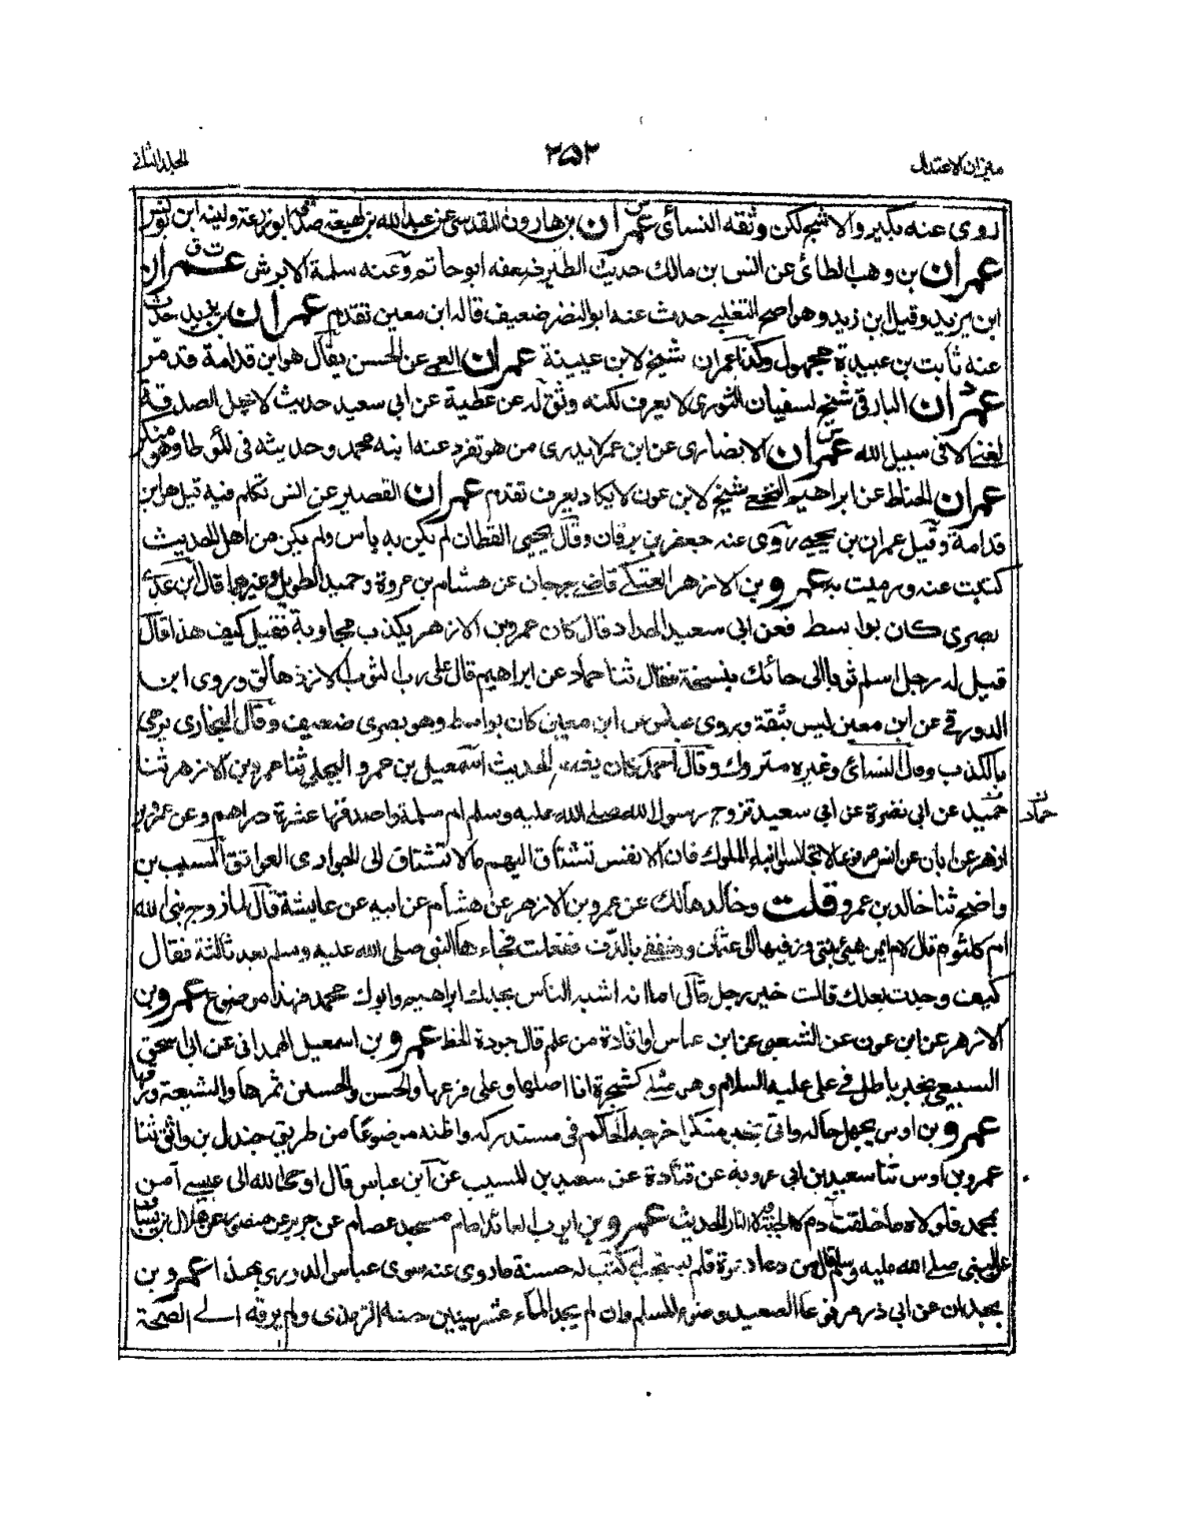 ميزان الاعتدال
٢٥٢
المجلد الثانى
روى عنه بكير والاشج لكن وثقه النسائى عمران بن هارون المقدسى عن عبد الله بن لهيعة صدقه ابو زرعة ولينه ابن يونس
عمران بن وهب الطائى عن انس بن مالك حديث الطير ضعفه ابو حاتم وعنه سلمة الابرش عمران
ابن يزيد وقيل بن زيد وهو اصح التغلبى حدث عنه ابو النضر ضعيف قاله ابن معين تقدم عمران بن يزيد حدث
عنه ثابت بن عبيدة مجهول وكذا عمران شيخ لابن عيينة عمران العمى عن الحسن يقال هو ابن قدامة قد مر
عمران البارقى شيخ لسفيان الثورى لا يعرف لكنه وثق له عن عطية عن ابى سعيد حديث لا تحل الصدقة
لغنى الا فى سبيل الله عمران الانصارى عن ابن عمر لا يدرى من هو تفرد عنه ابنه محمد وحديثه فى الموطا وهو منكر
عمران الخياط عن ابراهيم النخعى شيخ لابن عون لا يكاد يعرف تقدم عمران القصير عن انس تكلم فيه قيل هو ابن
قدامة وقيل عمران بن يحيى روى عنه جعفر بن برقان وقال يحيى القطان لم يكن به باس ولم يكن من اهل الحديث
كتبت عنه ورميت به عمرو بن الازهر العتكى قاضى جرجان عن هشام بن عروة وحميد الطويل وغيرهما قال ابن عدى
بصرى كان بواسط فعن ابى سعيد الحداد قال كان عمرو بن الازهر يكذب مجاوبة فقيل كيف هذا قال
قيل له رجل اسلم ثوبا الى حائك ينسجه فقال ثنا حماد عن ابراهيم قال على رب الثوب الا زهالق وروى ابن
الدورقى عن ابن معين ليس بثقة وروى عباس عن ابن معين كان بواسط وهو بصرى ضعيف وقال البخارى يرمى
بالكذب وقال النسائى وغيره متروك وقال احمد كان يضع الحديث اسمعيل بن عمرو البجلى ثنا عمرو بن الازهر ثنا
حميد عن ابى نضرة عن ابى سعيد تزوج رسول الله صلى الله عليه وسلم ام سلمة واصدقها عشرة دراهم وعن عمرو بن
حماد
ازهر عن ابان عن انس مرفوعا لا تجالسوا ابناء الملوك فان الانفس تشتاق اليهم ما لا تشتاق الى الجوارى العواتق المسيب بن
واضح ثنا خالد بن عمرو قلت وخالد هالك عن عمرو بن الازهر عن هشام عن ابيه عن عايشة قال لما زوج نبى الله
ام كلثوم قال لام ايمن هيئى بنتى وزفيها الى عثمان وخفقى بالدف ففعلت فجاءها النبى صلى الله عليه وسلم بعد ثالثة فقال
كيف وجدت بعلك قالت خير رجل قال اما انه اشبه الناس بجدك ابراهيم وابوك محمد فهذا موضوع عمرو بن
الازهر عن ابن عون عن الشعبى عن ابن عباس او اثارة من علم قال جودة الخط عمرو بن اسمعيل الهمدانى عن ابى اسحق
السبيعى بخبر باطل فى على عليه السلام وهو مثلى كشجرة انا اصلها وعلى فرعها والحسن والحسين ثمرها والشيعة ورقها
عمرو بن اوس يجهل حاله واتى بخبر منكر اخرجه الحاكم فى مستدركه واظنه موضوعا من طريق جندل بن واثق ثنا
عمرو بن اوس ثنا سعيد بن ابى عروبة عن قتادة عن سعيد بن المسيب عن ابن عباس قال اوحى الله الى عيسى آمن
بمحمد فلولاه ما خلقت آدم ولا الجنة ولا النار الحديث عمرو بن ايوب العابد امام مسجد عصام عن جرير عن منصور عن هلال بن يساف
عن النبى صلى الله عليه وسلم قال من دعا دعوة فلم يستجب له كتب له حسنة ما روى عنه سوى عباس الدورى بهذا عمرو بن
بجدان عن ابى ذر مرفوعا الصعيد وضوء المسلم وان لم يجد الماء عشر سنين حسنه الترمذى ولم يرقه الى الصحة